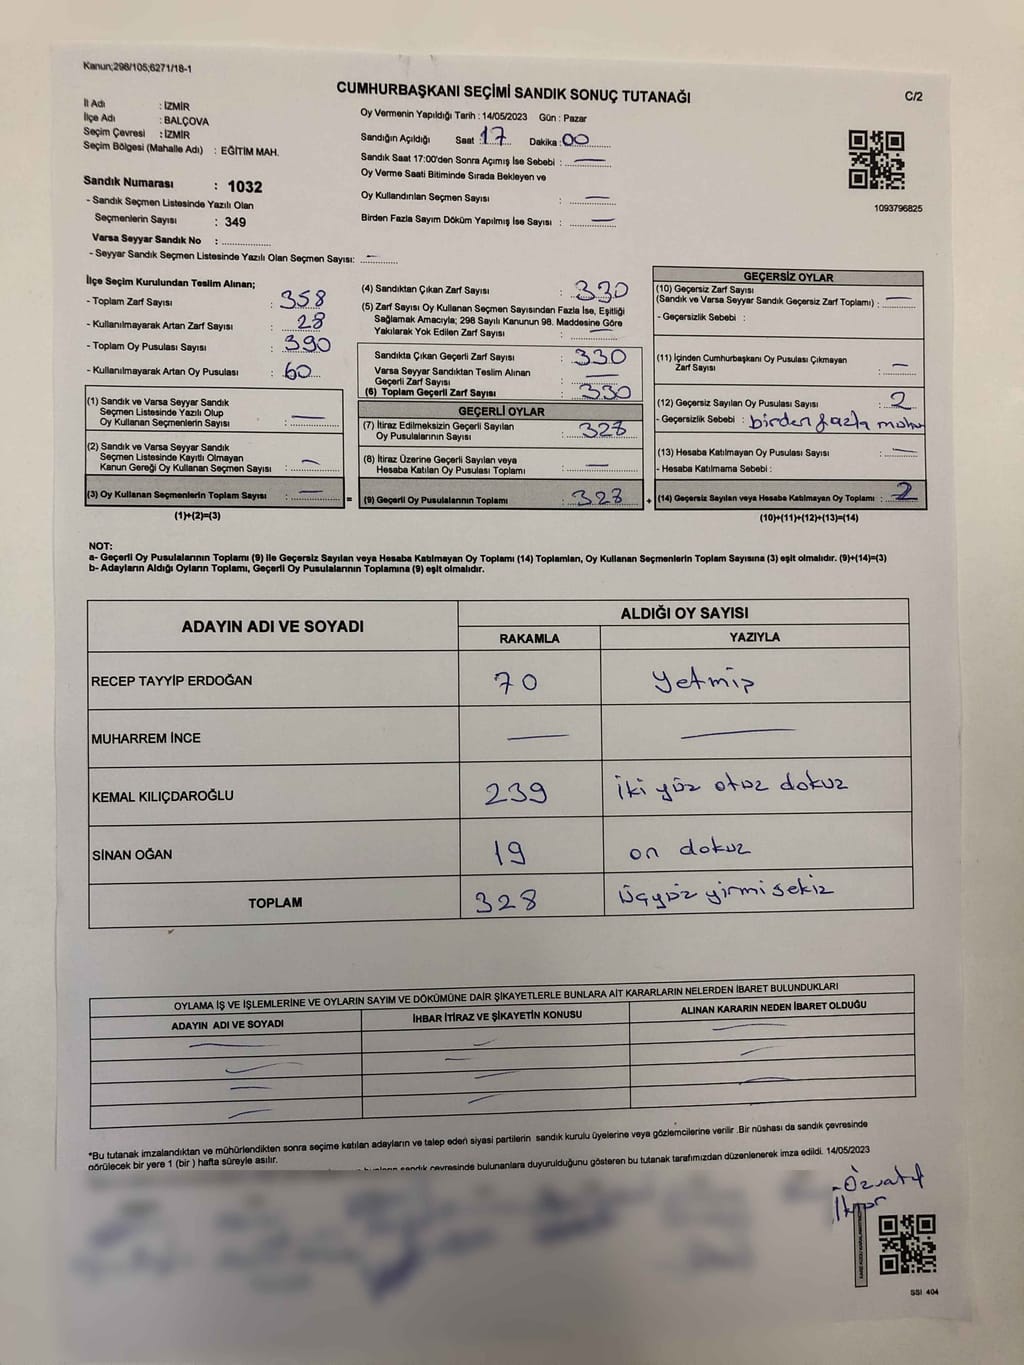 Kanun;298/105;6271/18-1
CUMHURBAŞKANI SEÇİMİ SANDIK SONUÇ TUTANAĞI
C/2
İl Adı : İZMİR
İlçe Adı : BALÇOVA
Seçim Çevresi : İZMİR
Seçim Bölgesi (Mahalle Adı) : EĞİTİM MAH.
Sandık Numarası : 1032
- Sandık Seçmen Listesinde Yazılı Olan
Seçmenlerin Sayısı : 349
Varsa Seyyar Sandık No :
- Seyyar Sandık Seçmen Listesinde Yazılı Olan Seçmen Sayısı: —
Oy Vermenin Yapıldığı Tarih : 14/05/2023 Gün : Pazar
Sandığın Açıldığı Saat : 17 Dakika : 00
Sandık Saat 17:00'den Sonra Açımış İse Sebebi : —
Oy Verme Saati Bitiminde Sırada Bekleyen ve
Oy Kullandırılan Seçmen Sayısı : —
Birden Fazla Sayım Döküm Yapılmış İse Sayısı : —
1093796825
İlçe Seçim Kurulundan Teslim Alınan;
- Toplam Zarf Sayısı : 358
- Kullanılmayarak Artan Zarf Sayısı : 28
- Toplam Oy Pusulası Sayısı : 390
- Kullanılmayarak Artan Oy Pusulası : 60
(1) Sandık ve Varsa Seyyar Sandık
Seçmen Listesinde Yazılı Olup
Oy Kullanan Seçmenlerin Sayısı : —
(2) Sandık ve Varsa Seyyar Sandık
Seçmen Listesinde Kayıtlı Olmayan
Kanun Gereği Oy Kullanan Seçmen Sayısı : —
(3) Oy Kullanan Seçmenlerin Toplam Sayısı : —
(1)+(2)=(3)
=
(4) Sandıktan Çıkan Zarf Sayısı : 330
(5) Zarf Sayısı Oy Kullanan Seçmen Sayısından Fazla İse, Eşitliği
Sağlamak Amacıyla; 298 Sayılı Kanunun 98. Maddesine Göre
Yakılarak Yok Edilen Zarf Sayısı : —
Sandıkta Çıkan Geçerli Zarf Sayısı : 330
Varsa Seyyar Sandıktan Teslim Alınan
Geçerli Zarf Sayısı : —
(6) Toplam Geçerli Zarf Sayısı : 330
GEÇERLİ OYLAR
(7) İtiraz Edilmeksizin Geçerli Sayılan
Oy Pusulalarının Sayısı : 328
(8) İtiraz Üzerine Geçerli Sayılan veya
Hesaba Katılan Oy Pusulası Toplamı : —
(9) Geçerli Oy Pusulalarının Toplamı : 328
+
GEÇERSİZ OYLAR
(10) Geçersiz Zarf Sayısı
(Sandık ve Varsa Seyyar Sandık Geçersiz Zarf Toplamı) : —
- Geçersizlik Sebebi :
(11) İçinden Cumhurbaşkanı Oy Pusulası Çıkmayan
Zarf Sayısı : —
(12) Geçersiz Sayılan Oy Pusulası Sayısı : 2
- Geçersizlik Sebebi : birden fazla
(13) Hesaba Katılmayan Oy Pusulası Sayısı : —
- Hesaba Katılmama Sebebi :
(14) Geçersiz Sayılan veya Hesaba Katılmayan Oy Toplamı : 2
(10)+(11)+(12)+(13)=(14)
NOT:
a- Geçerli Oy Pusulalarının Toplamı (9) ile Geçersiz Sayılan veya Hesaba Katılmayan Oy Toplamı (14) Toplamları, Oy Kullanan Seçmenlerin Toplam Sayısına (3) eşit olmalıdır. (9)+(14)=(3)
b- Adayların Aldığı Oyların Toplamı, Geçerli Oy Pusulalarının Toplamına (9) eşit olmalıdır.
ADAYIN ADI VE SOYADI
ALDIĞI OY SAYISI
RAKAMLA YAZIYLA
RECEP TAYYİP ERDOĞAN 70 yetmiş
MUHARREM İNCE — —
KEMAL KILIÇDAROĞLU 239 iki yüz otuz dokuz
SİNAN OĞAN 19 on dokuz
TOPLAM 328 üçyüz yirmisekiz
OYLAMA İŞ VE İŞLEMLERİNE VE OYLARIN SAYIM VE DÖKÜMÜNE DAİR ŞİKAYETLERLE BUNLARA AİT KARARLARIN NELERDEN İBARET BULUNDUKLARI
ADAYIN ADI VE SOYADI İHBAR İTİRAZ VE ŞİKAYETİN KONUSU ALINAN KARARIN NEDEN İBARET OLDUĞU
*Bu tutanak imzalandıktan ve mühürlendikten sonra seçime katılan adayların ve talep eden siyasi partilerin sandık kurulu üyelerine veya gözlemcilerine verilir .Bir nüshası da sandık çevresinde
görülecek bir yere 1 (bir ) hafta süreyle asılır.
sandık çevresinde bulunanlara duyurulduğunu gösteren bu tutanak tarafımızdan düzenlenerek imza edildi. 14/05/2023
SSI 404